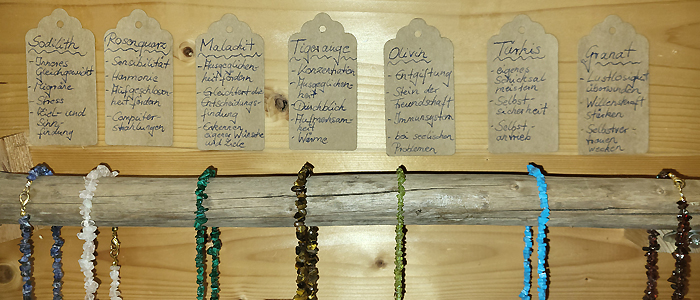 Sodilith
- Inneres
Gleichgewicht
- Migräne
- Stress
- Ziel- und
Sinn-
findung
Rosenquarz
- Sensibilität
- Harmonie
- Aufgeschlossen-
heit fördern
- Computer-
strahlungen
Malachit
- Ausgeglichen-
heit fördern
- Erleichtert die
Entscheidungs-
findung
- Erkennen
eigene Wünsche
und Ziele
Tigerauge
- Konzentration
- Ausgeglichen-
heit
- Durchblick
- Aufmerksam-
keit
- Wärme
Olivin
- Entgiftung
- Stein der
Freundschaft
- Immunsystem
- bei seelischen
Problemen
Türkis
- eigenes
Schicksal
meistern
- Selbst-
sicherheit
- Selbst-
antrieb
Granat
- Lustlosigkeit
überwinden
- Willenskraft
stärken
- Selbstver-
trauen
wecken